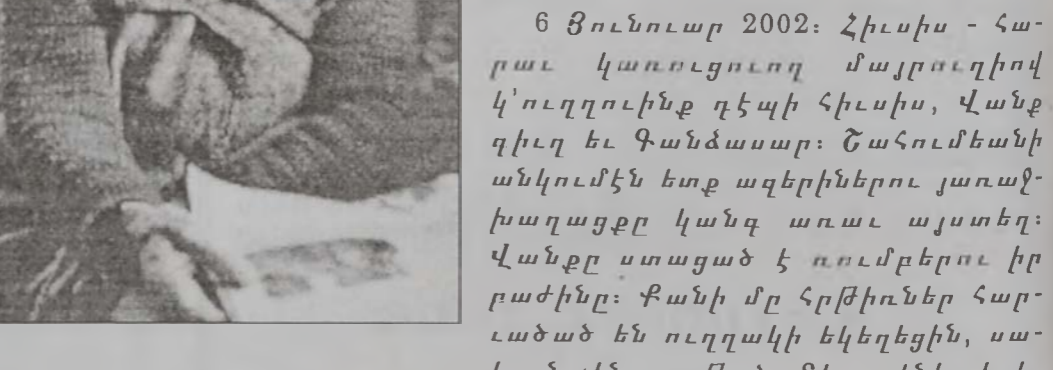 6 Յունուար 2002։ Հիւսիս - Հա-
րաւ կառուցուող մայրուղիով
կ՚ուղղուինք դէպի Հիւսիս, Վանք
գիւղ եւ Գանձասար։ Շահումեանի
անկումէն ետք ազերիներու յառաջ-
խաղացքը կանգ առաւ այստեղ։
Վանքը ստացած է ռումբերու իր
բաժինը։ Քանի մը հրթիռներ հար-
ւածած են ուղղակի եկեղեցին, սա-